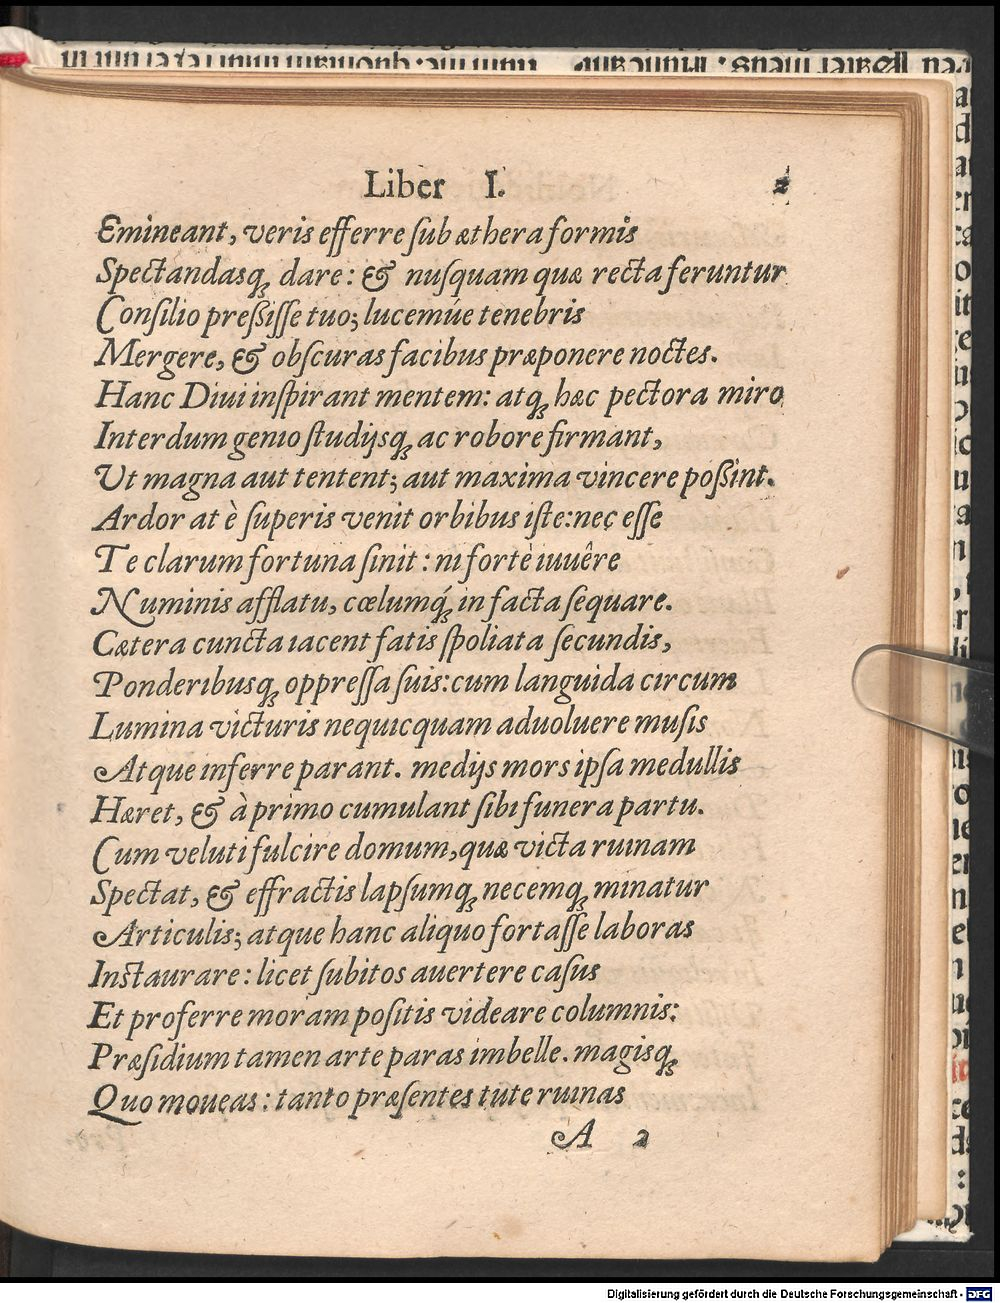 Liber I. 2
Emineant, veris efferre ſub æthera formis
Spectandasq́ꝫ dare: & nuſquam quæ recta feruntur
Conſilio preßiſſe tuo; lucemúe tenebris
Mergere, & obſcuras facibus præponere noctes.
Hanc Diui inſpirant mentem: atqꝫ hæc pectora miro
Interdum genio ſtudijsqꝫ ac robore firmant,
Ut magna aut tentent; aut maxima vincere poßint.
Ardor at è ſuperis venit orbibus iſte: nec eſſe
Te clarum fortuna ſinit: ni fortè iuuêre
Numinis afflatu, cœlumq́ꝫ in facta ſequare.
Cætera cuncta iacent fatis ſpoliata ſecundis,
Ponderibusqꝫ oppreſſa ſuis: cum languida circum
Lumina victuris nequicquam aduoluere muſis
Atque inferre parant. medijs mors ipſa medullis
Hæret, & à primo cumulant ſibi funera partu.
Cum veluti fulcire domum, quæ victa ruinam
Spectat, & effractis lapſumqꝫ necemqꝫ minatur
Articulis; atque hanc aliquo fortaſſe laboras
Inſtaurare: licet ſubitos auertere caſus
Et proferre moram poſitis videare columnis:
Præſidium tamen arte paras imbelle. magisqꝫ
Quo moueas: tanto præſentes tute ruinas
A 2
Digitalisierung gefördert durch die Deutsche Forschungsgemeinschaft - DFG